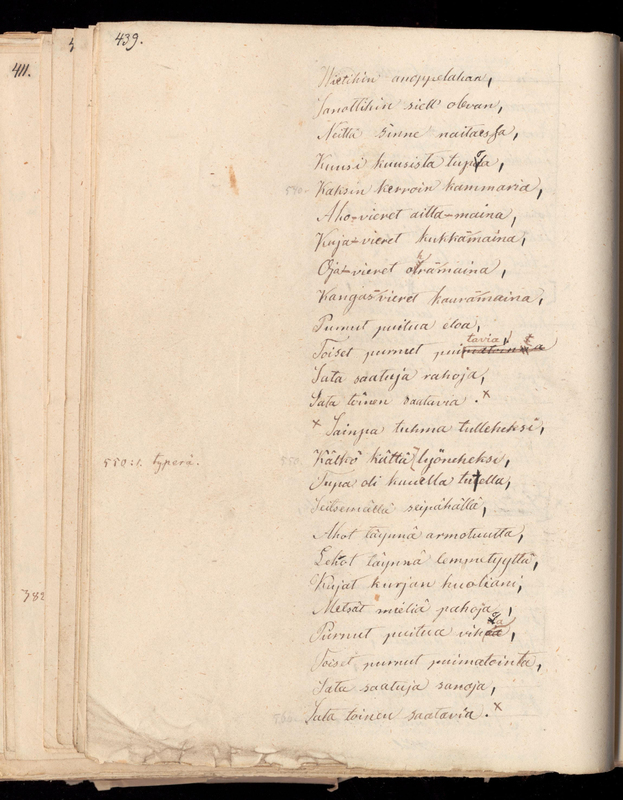 439.
411.
Wietihin anoppelahan,
Sanottihin siell' olevan,
Neittä sinne naitaessa,
Kuusi kuusista tupoa,
540.
Kaksin kerroin kammaria,
Aho-vieret aitta-maina,
Kuja-vieret kukkamaina,
Oja-vieret ohramaina,
Kangas-vieret kauramaina,
Purnut puitua eloa,
Toiset purnut puitavia,
Sata saatuja rahoja,
Sata toinen saatavia. x
x Sainpa tuhma tulleheksi,
550:1. typerä.
550.
Kätkö kättä lyöneheksi,
Tupa oli kuuella tuella,
Seitsemällä seipähällä,
Ahot täynnä armotuutta,
Lehot täynnä lempetyyttä,
Kujat kurjan huoliani,
382
Metsät mieliä pahoja,
Purnut puitua vihoa,
Toiset purnut puimatointa,
Sata saatuja sanoja,
560.
Sata toinen saatavia. x